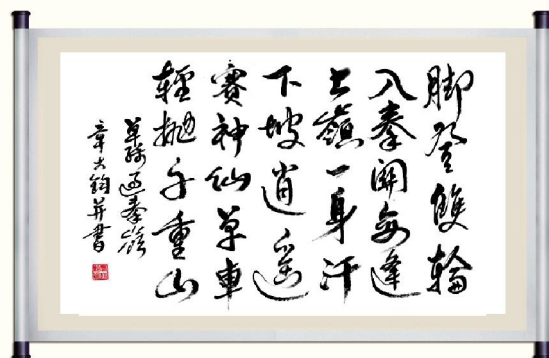 脚登雙輪
入秦關每逢
上嶺一身汗
下坡逍遥
賽神仙單車
輕抛千重山
單騎過秦嶺
章大鈞并書